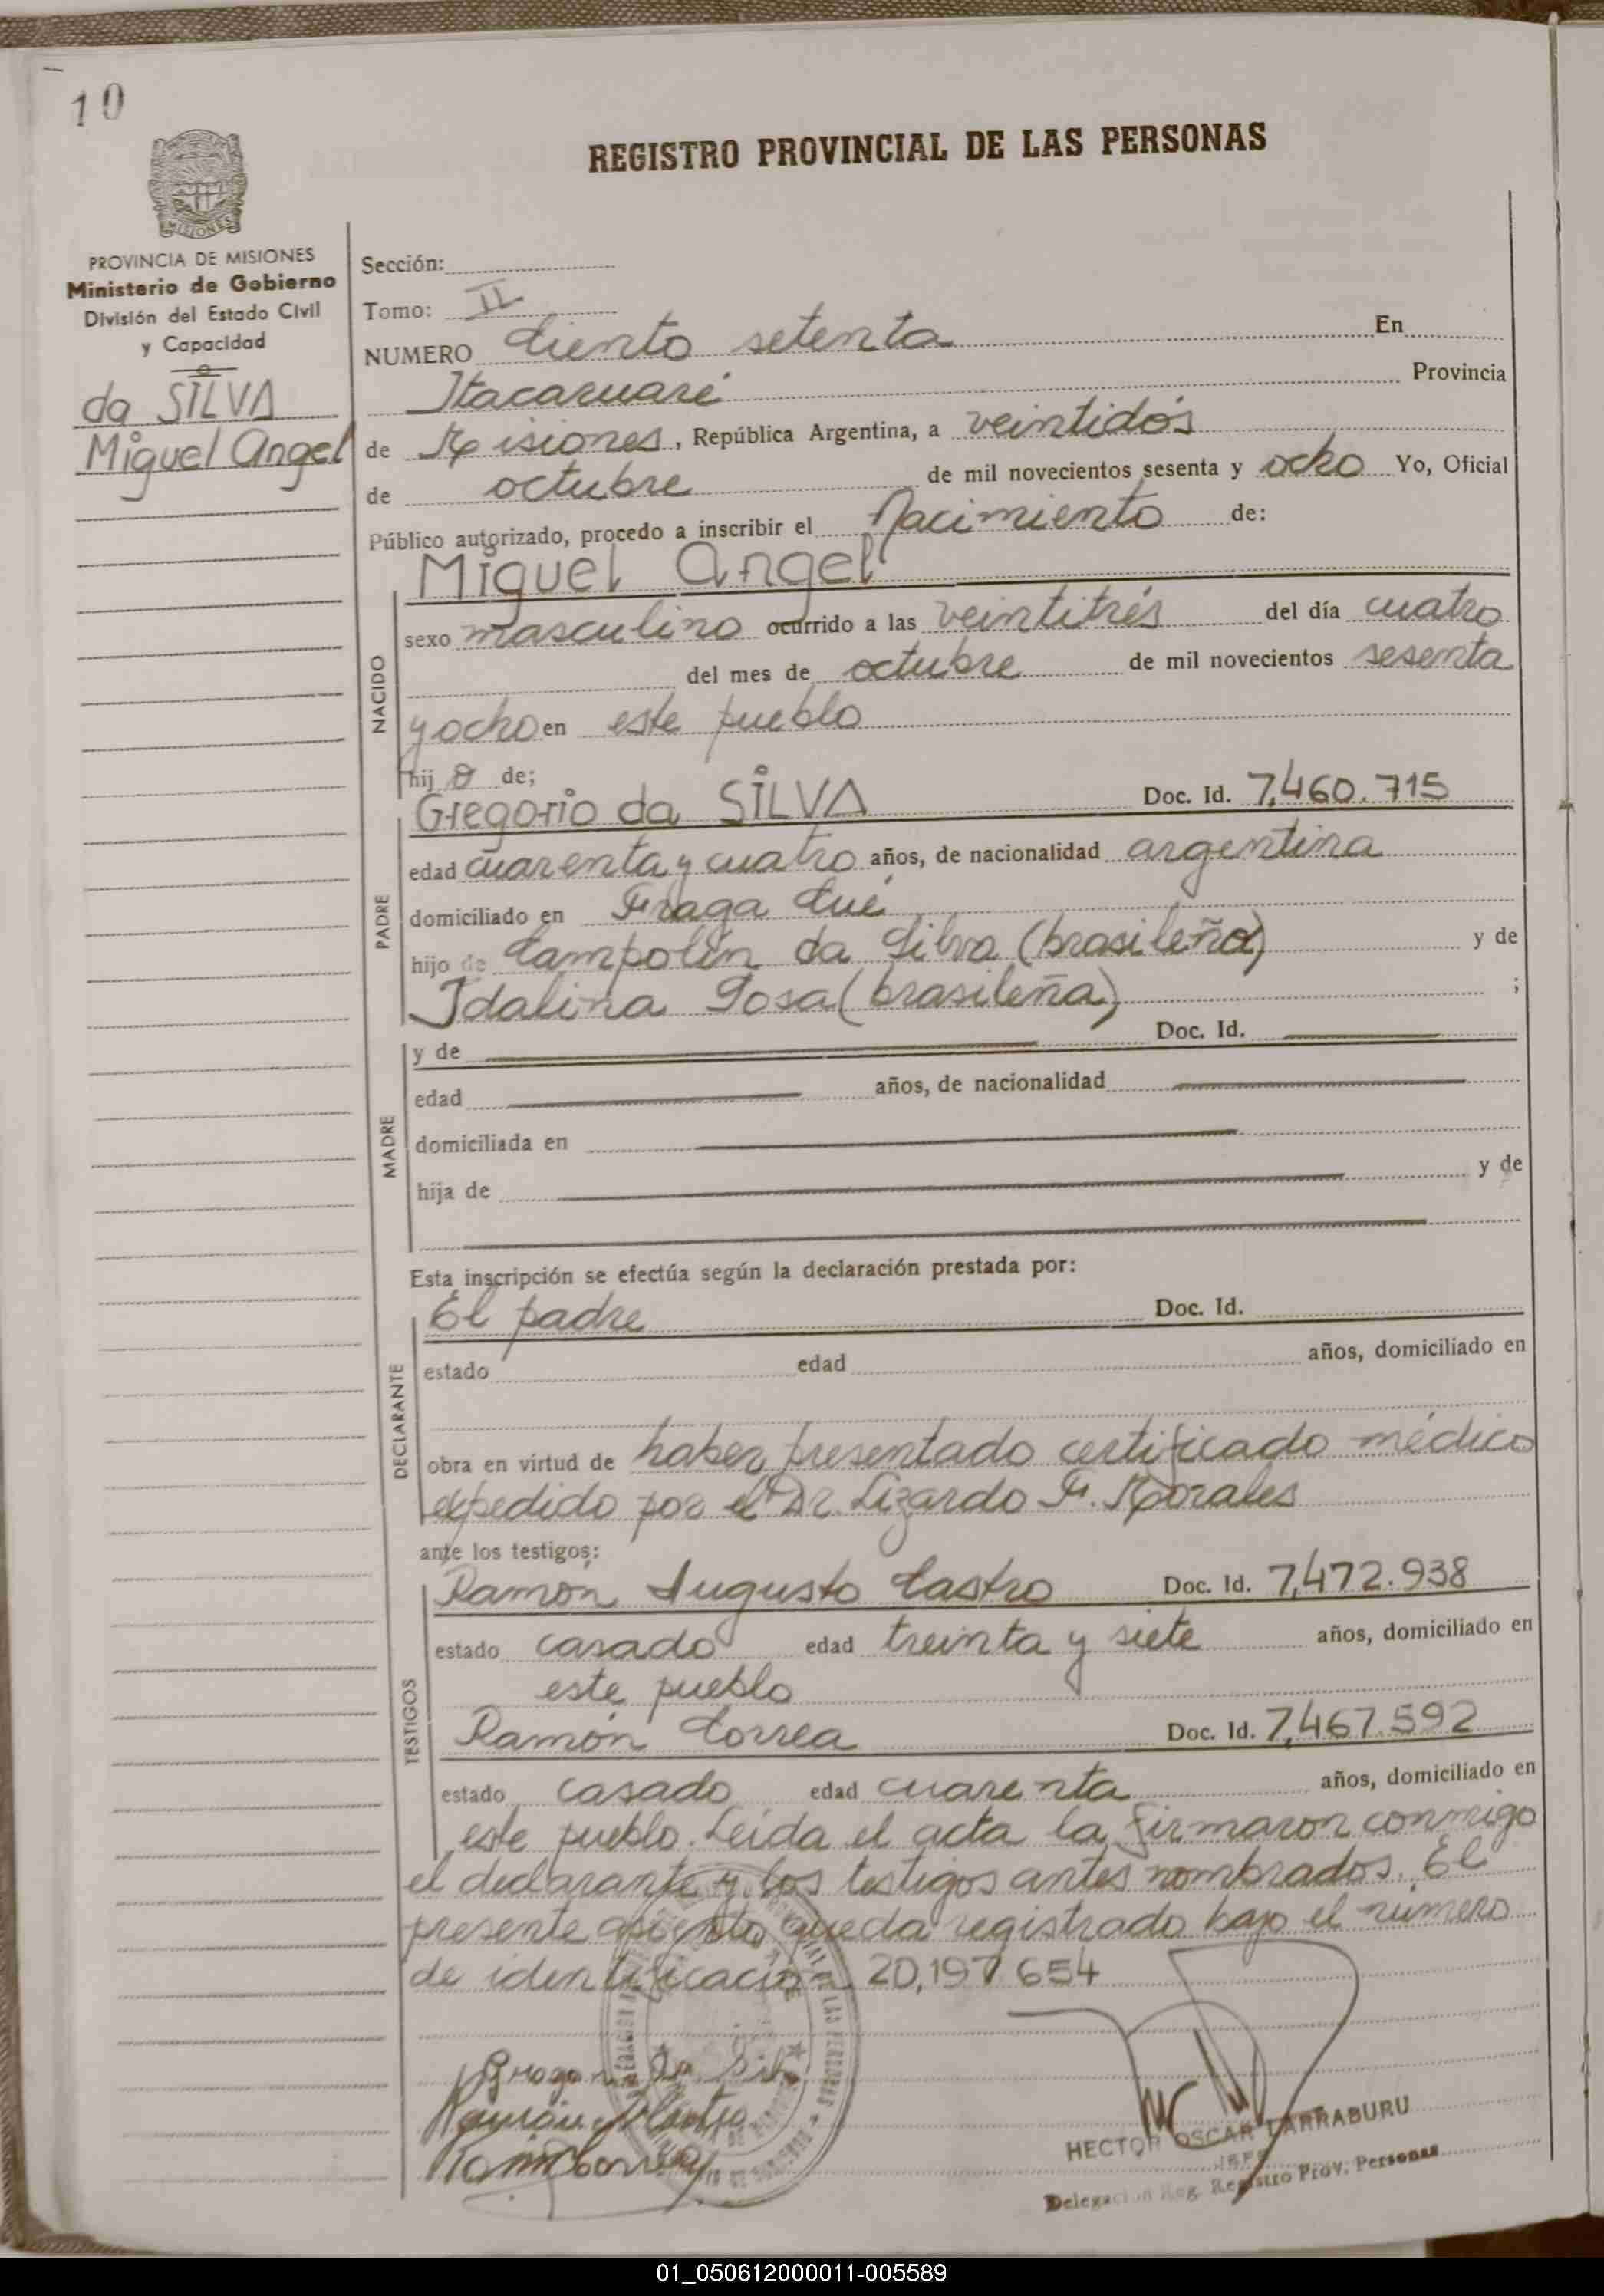 10
REGISTRO PROVINCIAL DE LAS PERSONAS
MISIONES
PROVINCIA DE MISIONES
Ministerio de Gobierno
División del Estado Civil
y Capacidad
da SILVA
Miguel Angel
Sección:
Tomo: II
NUMERO Ciento setenta En
Itacaruaré Provincia
de Misiones, República Argentina, a veintidós
de octubre de mil novecientos sesenta y ocho Yo, Oficial
Público autorizado, procedo a inscribir el Nacimiento de:
NACIDO
Miguel Angel
sexo masculino ocurrido a las veintitrés del día cuatro
del mes de octubre de mil novecientos sesenta
y ocho en este pueblo
hijo de;
PADRE
Gregorio da SILVA Doc. Id. 7,460.715
edad cuarenta y cuatro años, de nacionalidad argentina
domiciliado en Fraga Cué
hijo de Campolín da Silva (brasileña) y de
Idalina Rosa (brasileña) ;
MADRE
y de Doc. Id.
edad años, de nacionalidad
domiciliada en
hija de y de
Esta inscripción se efectúa según la declaración prestada por:
DECLARANTE
El padre Doc. Id.
estado edad años, domiciliado en
obra en virtud de haber presentado certificado médico
expedido por el Dr. Lizardo F. Morales
ante los testigos:
TESTIGOS
Ramón Augusto Castro Doc. Id. 7,472.938
estado casado edad treinta y siete años, domiciliado en
este pueblo
Ramón Correa Doc. Id. 7,467.592
estado casado edad cuarenta años, domiciliado en
este pueblo. Leída el acta la firmaron conmigo
el declarante y los testigos antes nombrados. El
presente asiento queda registrado bajo el número
de identificación 20,197.654
HECTOR OSCAR LARRABURU
JEFE
Delegación Reg. Registro Prov. Personas
01_050612000011-005589